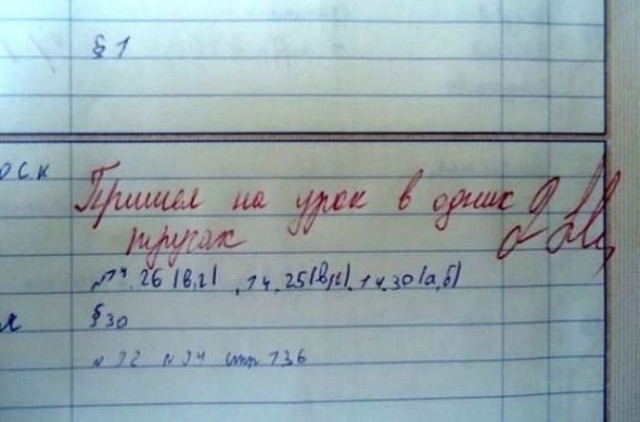 §1
Пришел на урок в одних
трусах 2
№14.26(в,г), 14.25(в,г), 14.30(а,б)
§30
№92 №94 стр 136